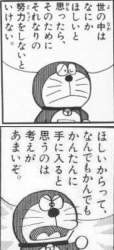 世の中は
なにか
ほしいと
思ったら、
そのために
それなりの
努力をしないと
いけない。
ほしいからって、
なんでもかんでも
かんたんに
手に入ると
思うのは
考えが
あまいぞ。